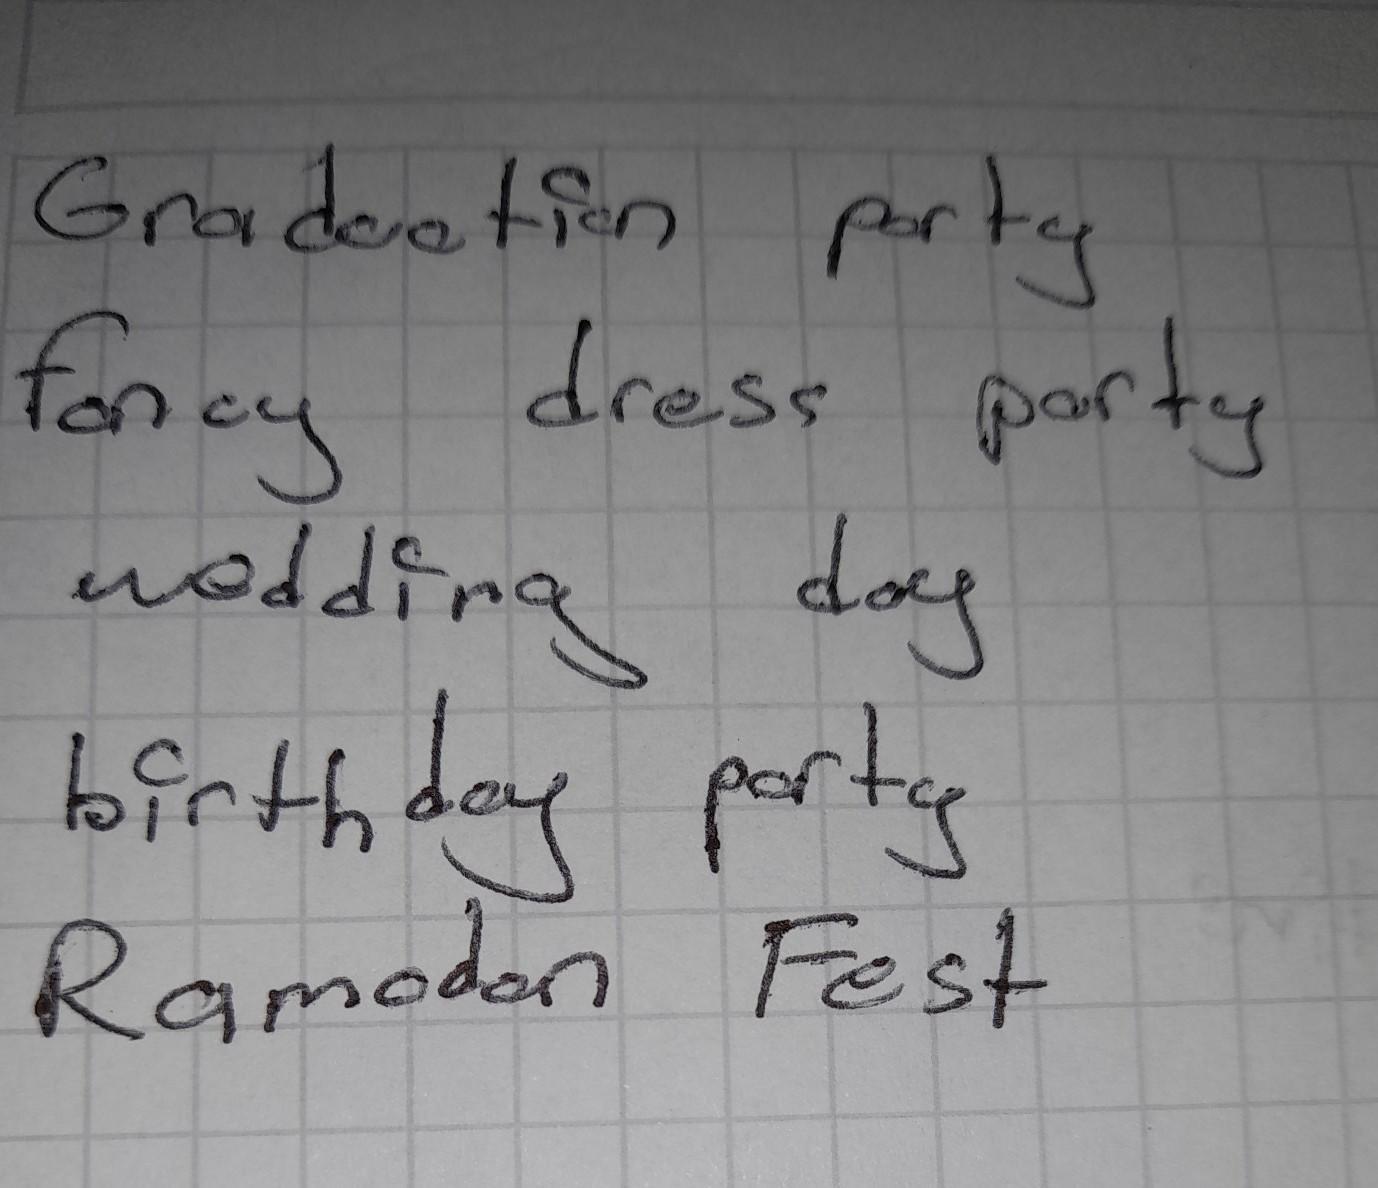 Graduation party
fancy dress party
wedding day
birthday party
Ramadan Fest